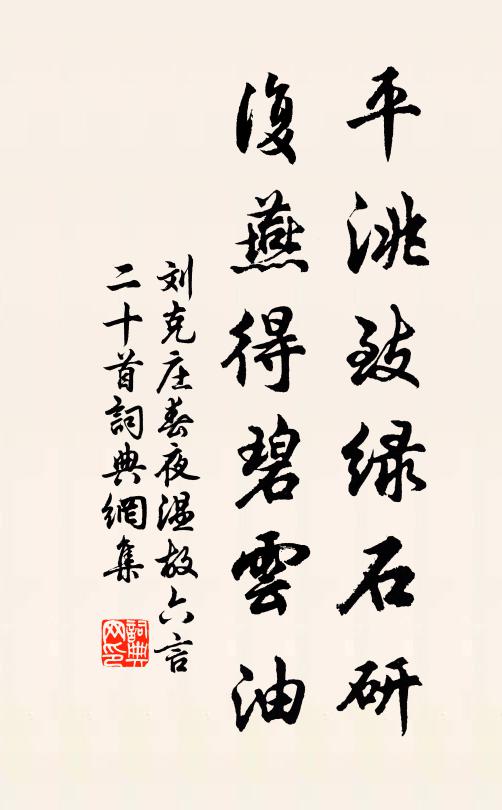 平洮致绿石研
復燕得碧雲油
刘克庄春夜温故六言
二十首詞典網集
詞典
网印